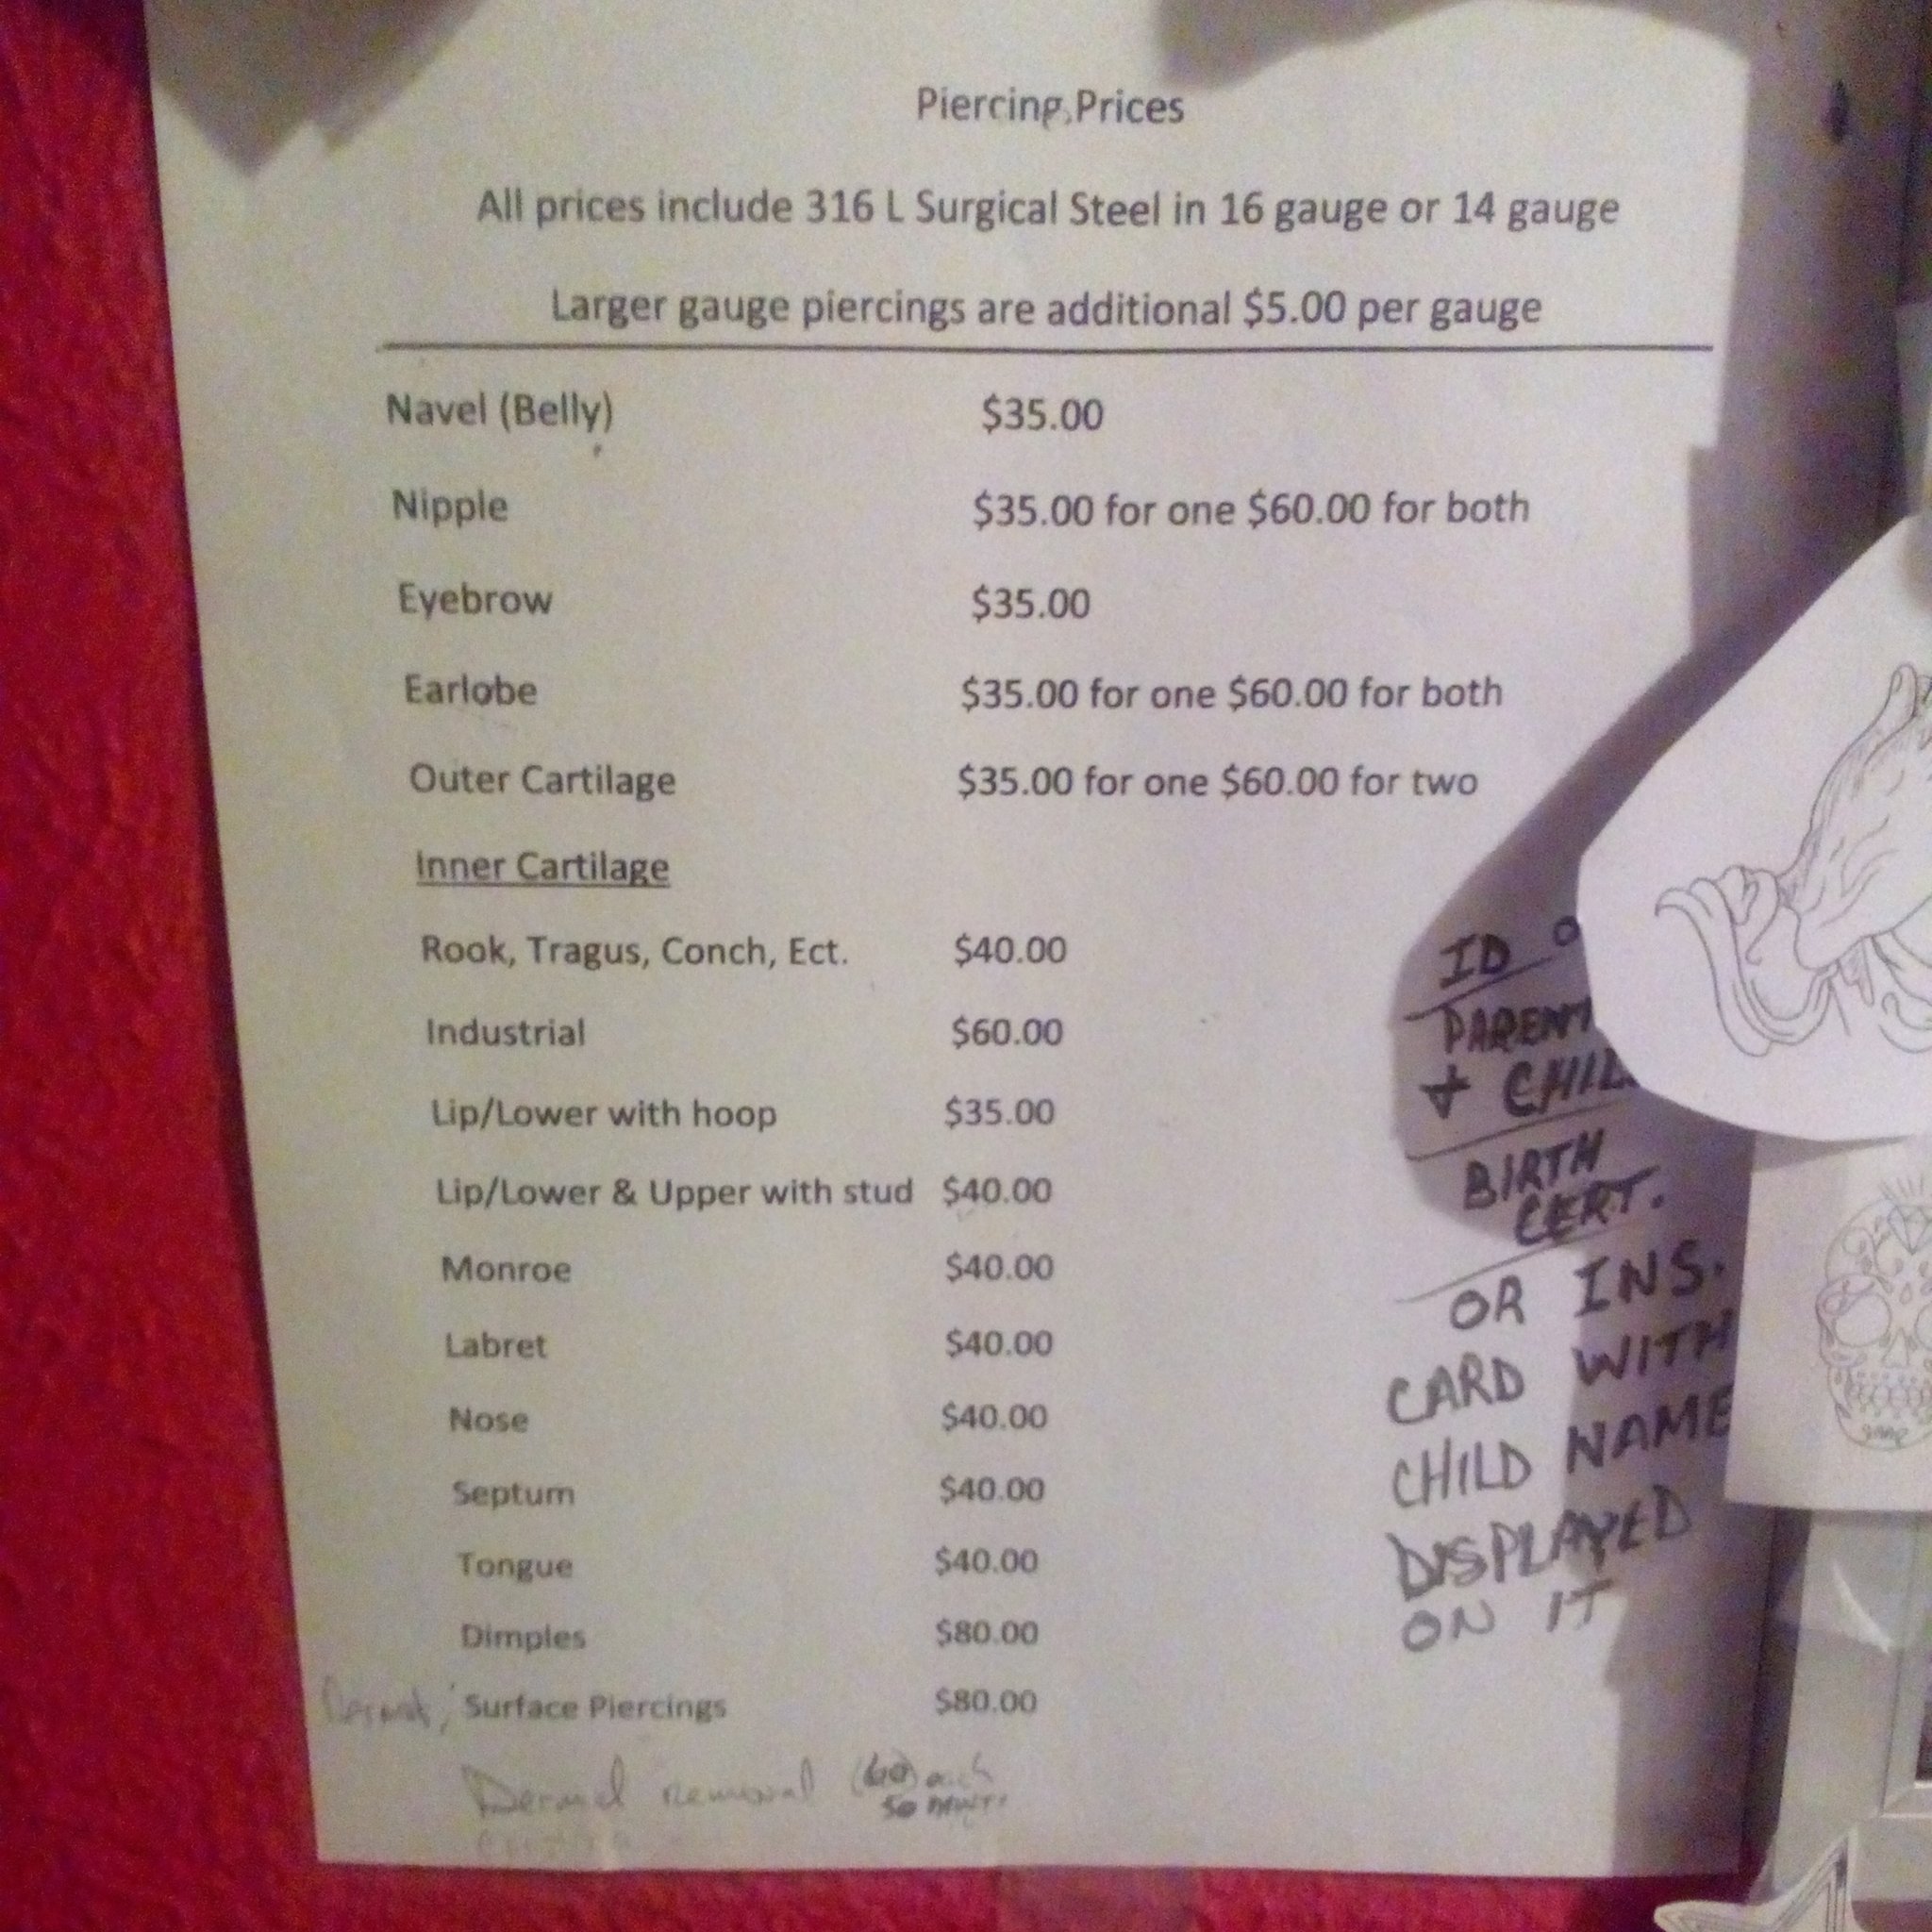 Piercing Prices
All prices include 316 L Surgical Steel in 16 gauge or 14 gauge
Larger gauge piercings are additional $5.00 per gauge
Navel (Belly) $35.00
Nipple $35.00 for one $60.00 for both
Eyebrow $35.00
Earlobe $35.00 for one $60.00 for both
Outer Cartilage $35.00 for one $60.00 for two
Inner Cartilage
Rook, Tragus, Conch, Ect. $40.00
Industrial $60.00
Lip/Lower with hoop $35.00
Lip/Lower & Upper with stud $40.00
Monroe $40.00
Labret $40.00
Nose $40.00
Septum $40.00
Tongue $40.00
Dimples $80.00
Surface Piercings $80.00
Dermel removal
ID
PARENT
+
BIRTH
CERT.
OR INS.
CARD WITH
CHILD NAME
DISPLAYED
ON IT